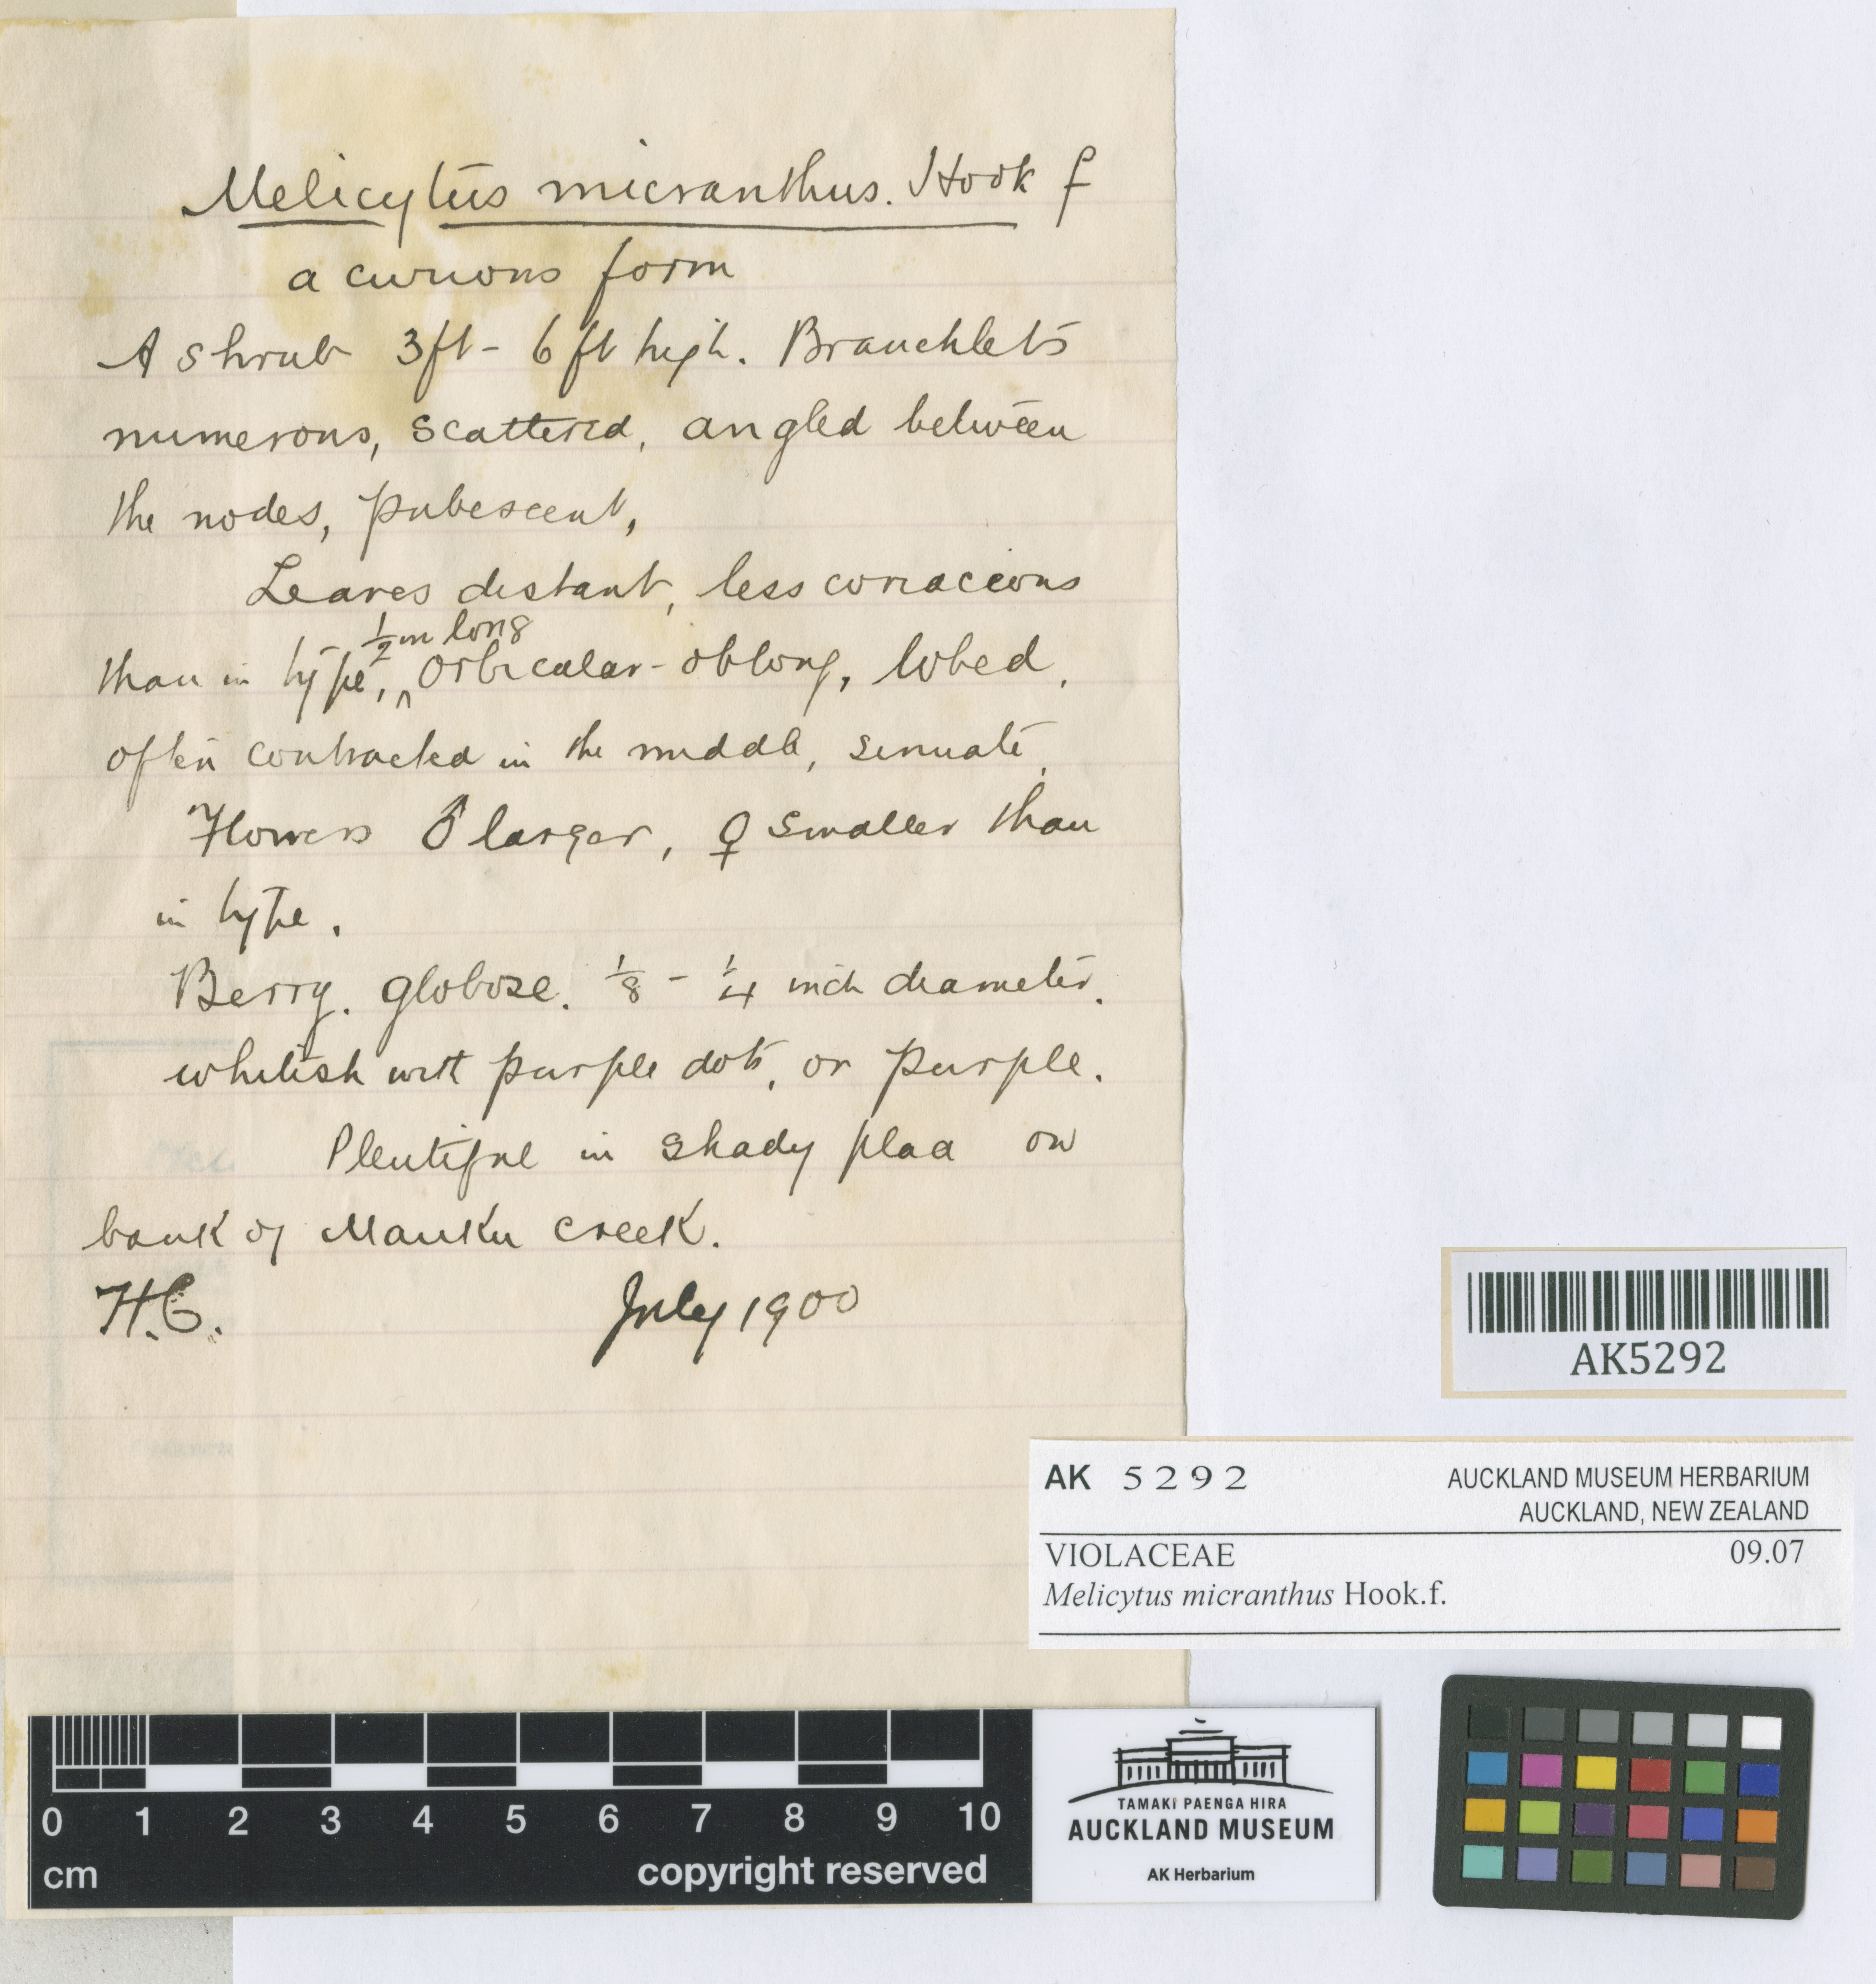 Melicytus micranthus. Hook f
a curious form
A shrub 3ft - 6ft high. Branchlets
numerous, scattered, angled between
the nodes, pubescent,
Leaves distant, less coriaceous
½ in long
than in type, ^ orbicular-oblong, lobed,
often contracted in the middle, sinuate.
Flowers ♂ larger, ♀ smaller than
in type.
Berry. globose. 1/8 - 1/4 inch diameter.
whitish with purple dots, or purple.
Plentiful in shady place on
bank of Mauku creek.
H.C. July 1900
AK5292
AK 5292 AUCKLAND MUSEUM HERBARIUM
AUCKLAND, NEW ZEALAND
VIOLACEAE 09.07
Melicytus micranthus Hook.f.
0 1 2 3 4 5 6 7 8 9 10
cm copyright reserved
TAMAKI PAENGA HIRA
AUCKLAND MUSEUM
AK Herbarium